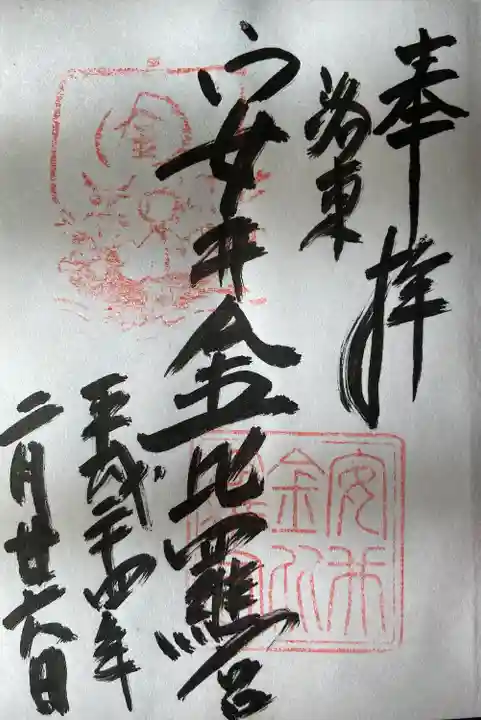 奉拝
洛東
安井金比羅宮
平成二十四年
二月廿六日
安井
金比
羅宮
金